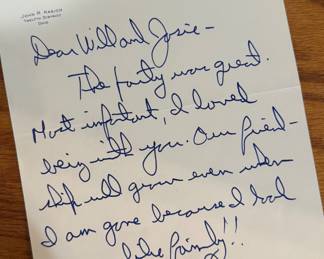 JOHN R. KASICH
TWELFTH DISTRICT
OHIO
Dear Will and Josie –
The party was great.
Most important, I loved
being with you. Our friend-
ship will grow even when
I am gone because I look
like family!!